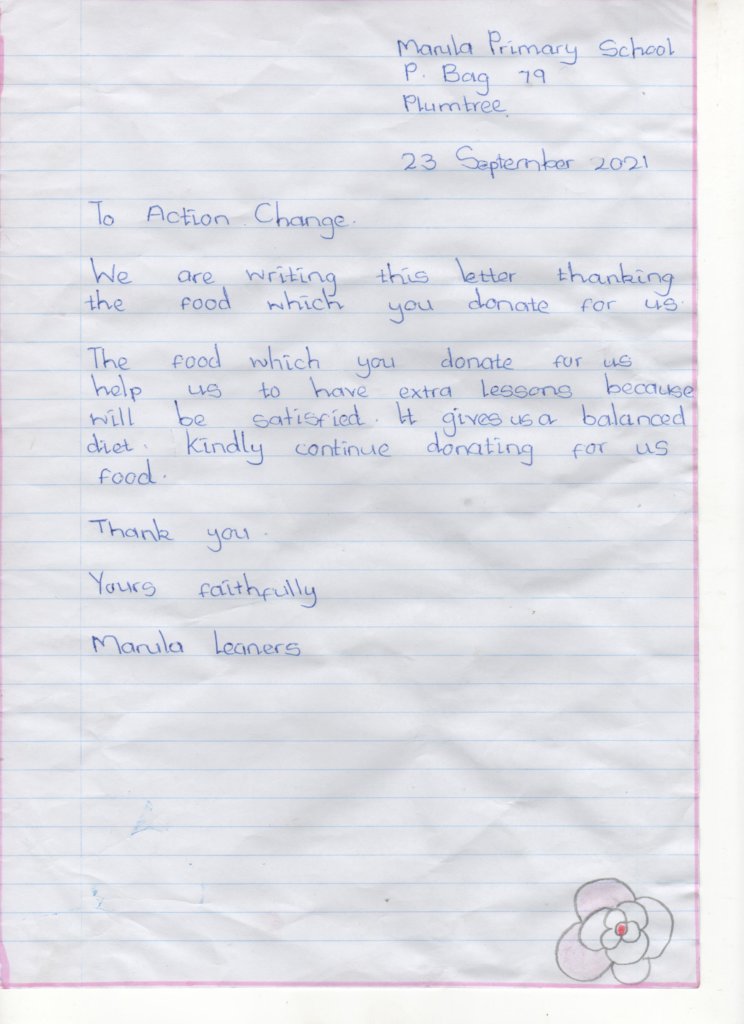 Marula Primary School
P. Bag 79
Plumtree
23 September 2021
To Action Change.
We are writing this letter thanking
the food which you donate for us.
The food which you donate for us
help us to have extra lessons because
will be satisfied. It gives us a balanced
diet. Kindly continue donating for us
food.
Thank you.
Yours faithfully
Marula Leaners